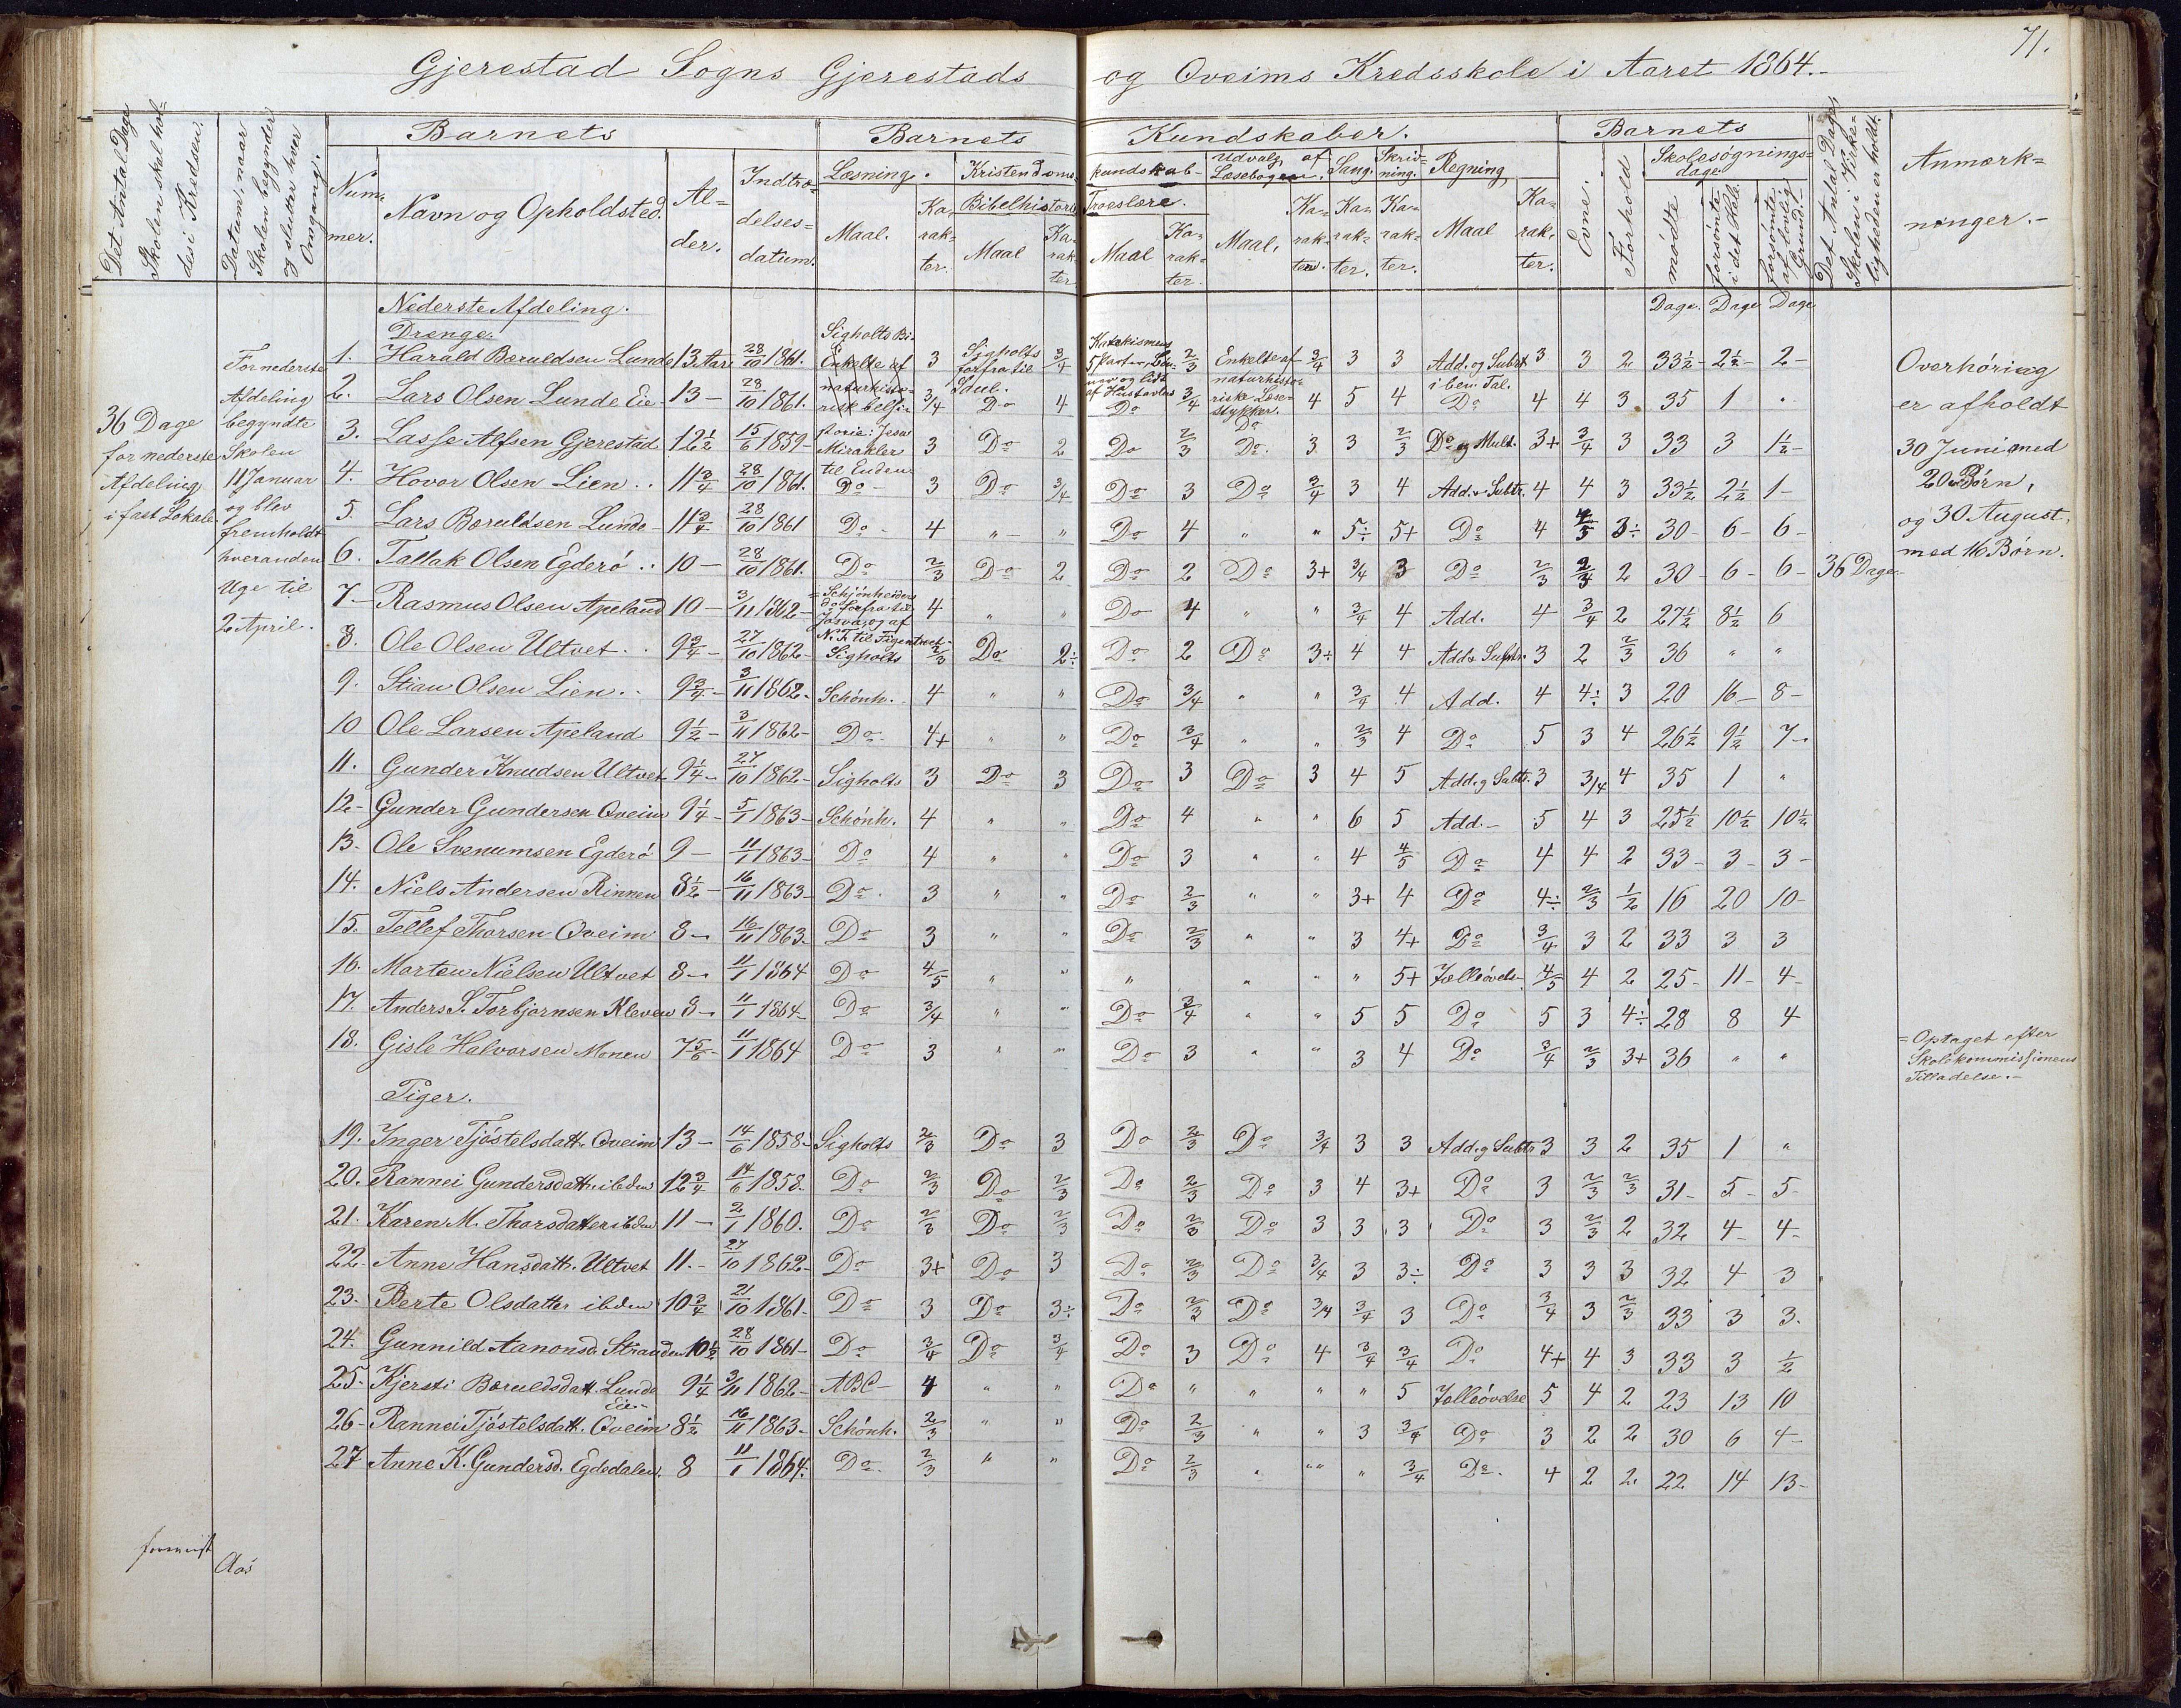 71.
Gjerestad Sogns Gjerestads og Oveims Kredsskole i Aaret 1864.-
Det Antal Dage Skolen skal holdes i Kredsen.
Datum, naar Skolen begynder og slutter hver Omgang.
Barnets
Nummer.
Navn og Opholdsted.
Alder.
Indtrædelsesdatum.
Barnets Kundskaber.
Læsning.
Maal.
Karakter.
Kristendomskundskab
Bibelhistorie
Maal
Karakter
Troeslære.
Maal
Karakter.
Udvalg af Læsebogen.
Maal.
Karakter.
Sang.
Karakter.
Skrivning.
Karakter.
Regning
Maal
Karakter.
Barnets
Evne.
Forhold
Skolesøgningsdage.
mødte
forsømte i det Hele.
forsømte af lovlig Grund.
Det Antal Dage Skolen i Virkeligheden er holdt.
Anmærkninger.-
Dage. Dage Dage
36 Dage
for nederste
Afdeling
i fast Lokale.
For nederste
Afdeling
begyndte
Skolen
11 Januar
og blev
fremholdt
hveranden
Uge til
2 April.
Nederste Afdeling.
Drenge.
1. Harald Bæruldsen Lunde 13 Aar 28/10 1861. 3 Sigholts forfra til Saul. 3/4 Katekismens 5 Parter, 2/3 Enkelte af naturhistoriske Læsestykker. 3/4 3 3 Add. og Subtr i ben. Tal. 3 3 2 33½- 2½- 2-
2. Lars Olsen Lunde Eie 13- 28/10 1861. 3/4 Do 4 Do 3/4 Do 4 5 4 Do 4 4 3 35 1 "
3. Lasse Alfsen Gjerestad 12½ 15/6 1859- Mirakler til Enden 3 Do 2 Do 2/3 Do. 3 3 2/3 Do og Mult. 3+ 3/4 3 33 3 1½-
4. Hovor Olsen Lien.. 11¾ 28/10 1861. Do- 3 Do 3/4 Do 3 Do 3/4 3 4 Add. & Subtr. 4 4 3 33½ 2½ 1-
5. Lars Bæruldsen Lunde- 11¾ 28/10 1861 Do- 4 " " Do 4 " " 5÷ 5+ Do 4 4/5 3÷ 30- 6- 6-
6. Tallak Olsen Egderø.. 10- 28/10 1861. Do 2/3 Do 2 Do 2 Do 3+ 3/4 3 Do 2/3 3/4 2 30- 6- 6- 36 Dage.
7- Rasmus Olsen Apeland 10- 3/11 1862- Schjönheiders do forfra til Josva, og af N. T. til 4 " " Do 4 " " 3/4 4 Add. 4 3/4 2 27½ 8½ 6
8. Ole Olsen Ultvet.. 9¾- 27/10 1862- Sigholts 2/3 Do 2÷ Do 2 Do 3÷ 4 4 Add & Subtr. 3 2 2/3 36 " "
9. Stian Olsen Lien.. 9¾- 3/11 1862- Schönh. 4 " " Do 3/4 " " 3/4 4 Add. 4 4÷ 3 20 16- 8-
10 Ole Larsen Apeland 9½- 3/11 1862- Do 4+ " " Do 3/4 " " 2/3 4 Do 5 3 4 26½ 9½ 7-
11. Gunder Knudsen Ultvet 9¼- 27/10 1862- Sigholts 3 Do 3 Do 3 Do 3 4 5 Add. og Subtr. 3 3/4 4 35 1 "
12- Gunder Gundersen Oveim 9¼- 5/1 1863- Schönh. 4 " " Do 4 " " 6 5 Add.- 5 4 3 25½ 10½ 10½
13. Ole Svenumsen Egderö 9- 11/1 1863- Do 4 " " Do 3 " " 4 4/5 Do 4 4 2 33- 3- 3-
14. Niels Andersen Rinnen 8½- 16/11 1863- Do. 3 " " Do 2/3 " " 3+ 4 Do 4÷ 2/3 1/2 16 20 10-
15. Tellef Thorsen Oveim 8- 16/11 1863. Do 3 " " Do 2/3 " " 3 4+ Do 3/4 3 2 33 3 3
16. Morten Nielsen Ultvet 8- 11/1 1864 Do 4/5 " " " " " " 5+ Tælleövels- 4/5 4 2 25- 11- 4-
17. Anders S. Torbjørnsen Kleven 8- 11/1 1864- Do 3/4 " " Do 3/4 " " 5 5 Do 5 3 4÷ 28 8 4
18. Gisle Halvorsen Monen 7 5/6- 11/1 1864 Do 3 " " Do 3 " " 3 4 Do 3/4 2/3 3+ 36 " "
Piger.
19. Inger Tjöstelsdatt. Oveim 13- 14/6 1858- Sigholts 2/3 Do 3 Do 2/3 Do 3/4 3 3 Add. og Subtr 3 3 2 35 1 "
20. Rannei Gundersdatt. ibdm 12¾ 14/6 1858. Do 2/3 Do 2/3 Do 2/3 Do 3 4 3+ Do 3 2/3 2/3 31- 5- 5-
21. Karen M. Thorsdatter ibdm 11- 2/1 1860. Do 2/3 Do 2/3 Do 2/3 Do 3 3 3 Do 3 2/3 2 32 4- 4-
22- Anne Hansdatt. Ultvet 11.- 27/10 1862- Do 3+ Do 3 Do 2/3 Do 3/4 3 3÷ Do 3 3 3 32 4 3
23. Berte Olsdatter ibdm 10¾ 21/10 1861- Do 3 Do 3÷ Do 2/3 Do 3/4 3/4 3 Do 3/4 3 2/3 33 3 3.
24. Gunnild Aanonsd. Stranden 10½ 28/10 1861- Do 3/4 Do 3/4 Do 3 Do 4 3/4 3/4 Do 4+ 4 3 33 3 ½
25- Kjersti Bæruldsdatt. Lunde Eie- 9¼ 3/11 1862- ABC- 4 " " Do " " " " 5 Tælleövelse 5 4 2 23 13 10
26- Rannei Tjöstelsdatt. Oveim 8½ 16/11 1863- Schönh. 2/3 " " Do 2/3 " " 3 3/4 Do 3 2 2 30 6 4-
27 Anne K. Gundersd. Egdedalen. 8 11/1 1864. Do. 2/3 " " Do 2/3 " " " 3/4 Do. 4 2 2 22 14 13-
Overhöring
er afholdt
30 Juni med
20 Børn,
og 30 August
med 16 Børn.
= Optaget efter
Skolekommissionens
Tilladelse.-
Aas